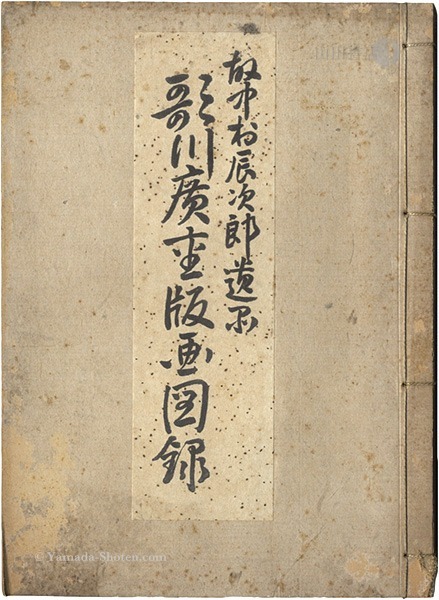 故中村辰次郎遺品
歌川廣重版画図録
© Yamada-Shoten.com